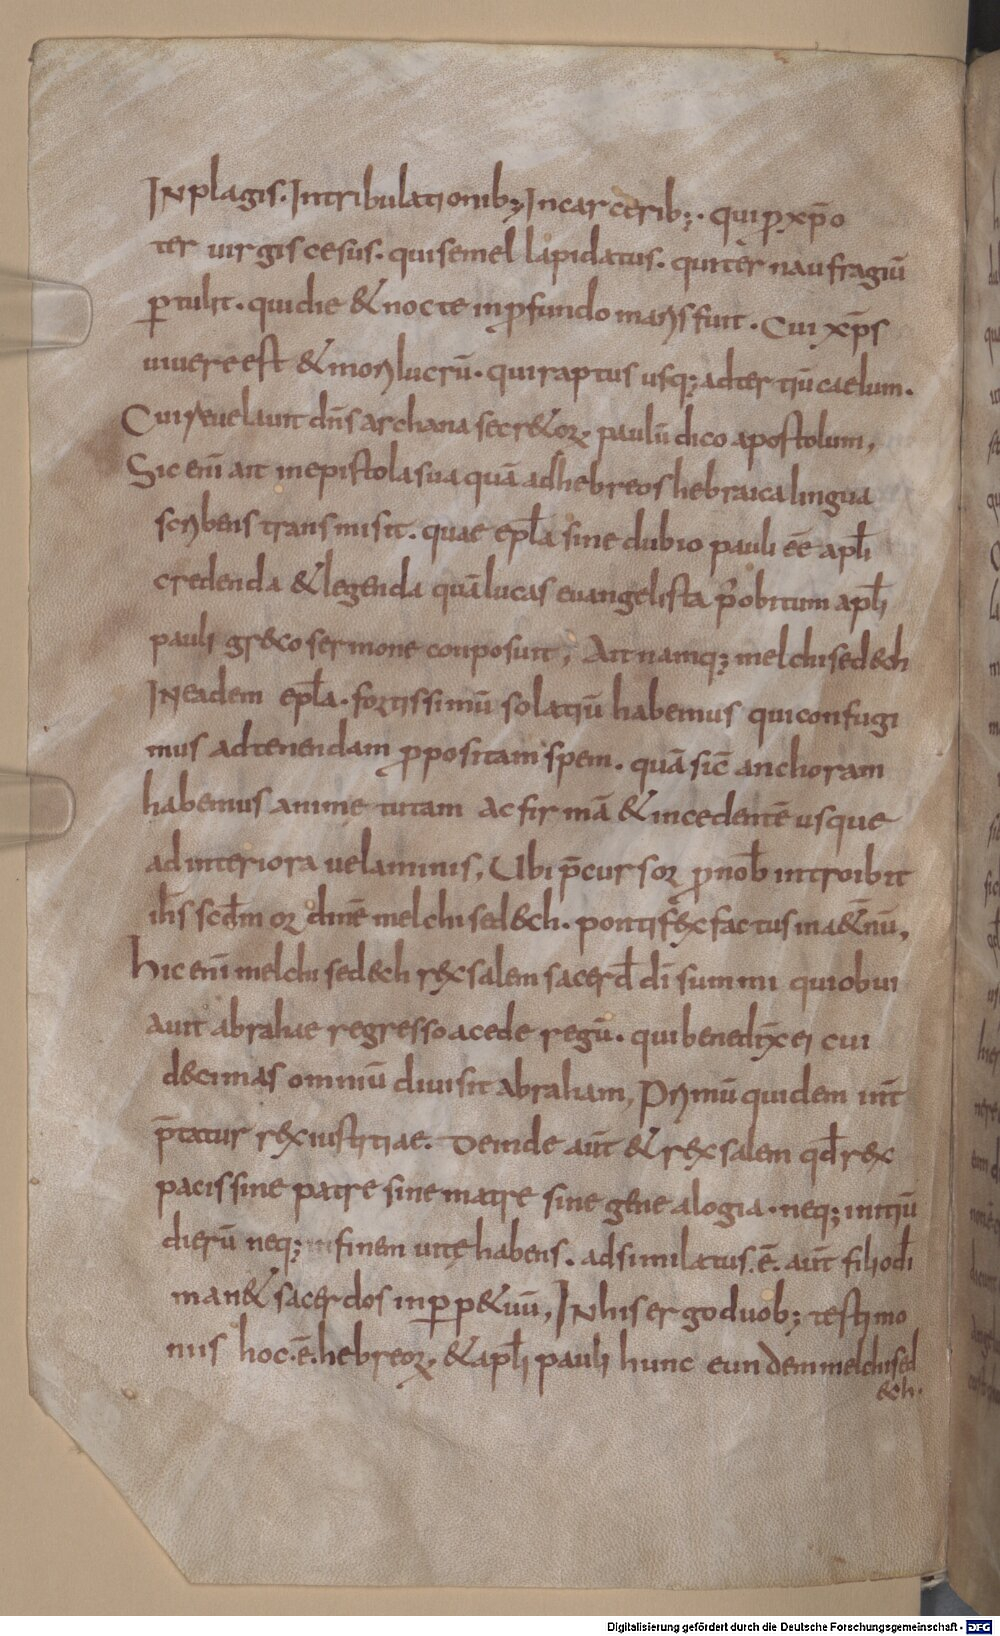 INplagis. Intribulationib; Incarcerib;. qui ꝑ xp̄o
ter uirgis cesus. qui semel lapidatus. qui ter naufragiū
ꝑtulit. qui die & nocte in ꝓfundo maris fuit. Cui xp̄s
uiuere est & mori lucrū. qui raptus usq; ad tertiū caelum.
Cui reuelauit dn̄s archana secr&oꝝ. paulū dico apostolum,
Sic eni͞ ait in epistola sua quā ad hebreos hebraica lingua
scribens transmisit. quae epl̄a sine dubio pauli ēe apl̄i
credenda & legenda quā lucas euangelista p̄ obitum apl̄i
pauli gr&co sermone conposuit, Ait namq; melchised&ch
INeadem epl̄a. fortissimū solatiū habemus qui confugi
mus ad tenendam ꝓpositam spem. quā sic̄ anchoram
habemus anime tutam ac firmā & incedentē usque
ad interiora uelaminis, Ubi p̄cursor ꝓ nob̄ introibit
ih̄s scd̄m ordinē melchised&ch. pontifex factus in a&nū,
Hic eni͞ melchised&ch rex salem sacerd̄ dī summi qui obui
auit abrahae regresso a cede regū. qui benedixei cui
decimas omniū diuisit abraham, Primū quidem int̄
p̄tatur rex iustitiae. Deinde aūt & rex salem qd̄ rex
pacis sine patre sine matre sine genealogia. neq; initiū
dierū neq; finem uitę habens. adsimilatus. ē. aūt filio dī
man& sacerdos in ꝑp&uū, IN his ergo duob; testimo
niis hoc. ē. hebreoꝝ. & apl̄i pauli hunc eundem melchised
&ch.
Digitalisierung gefördert durch die Deutsche Forschungsgemeinschaft - DFG